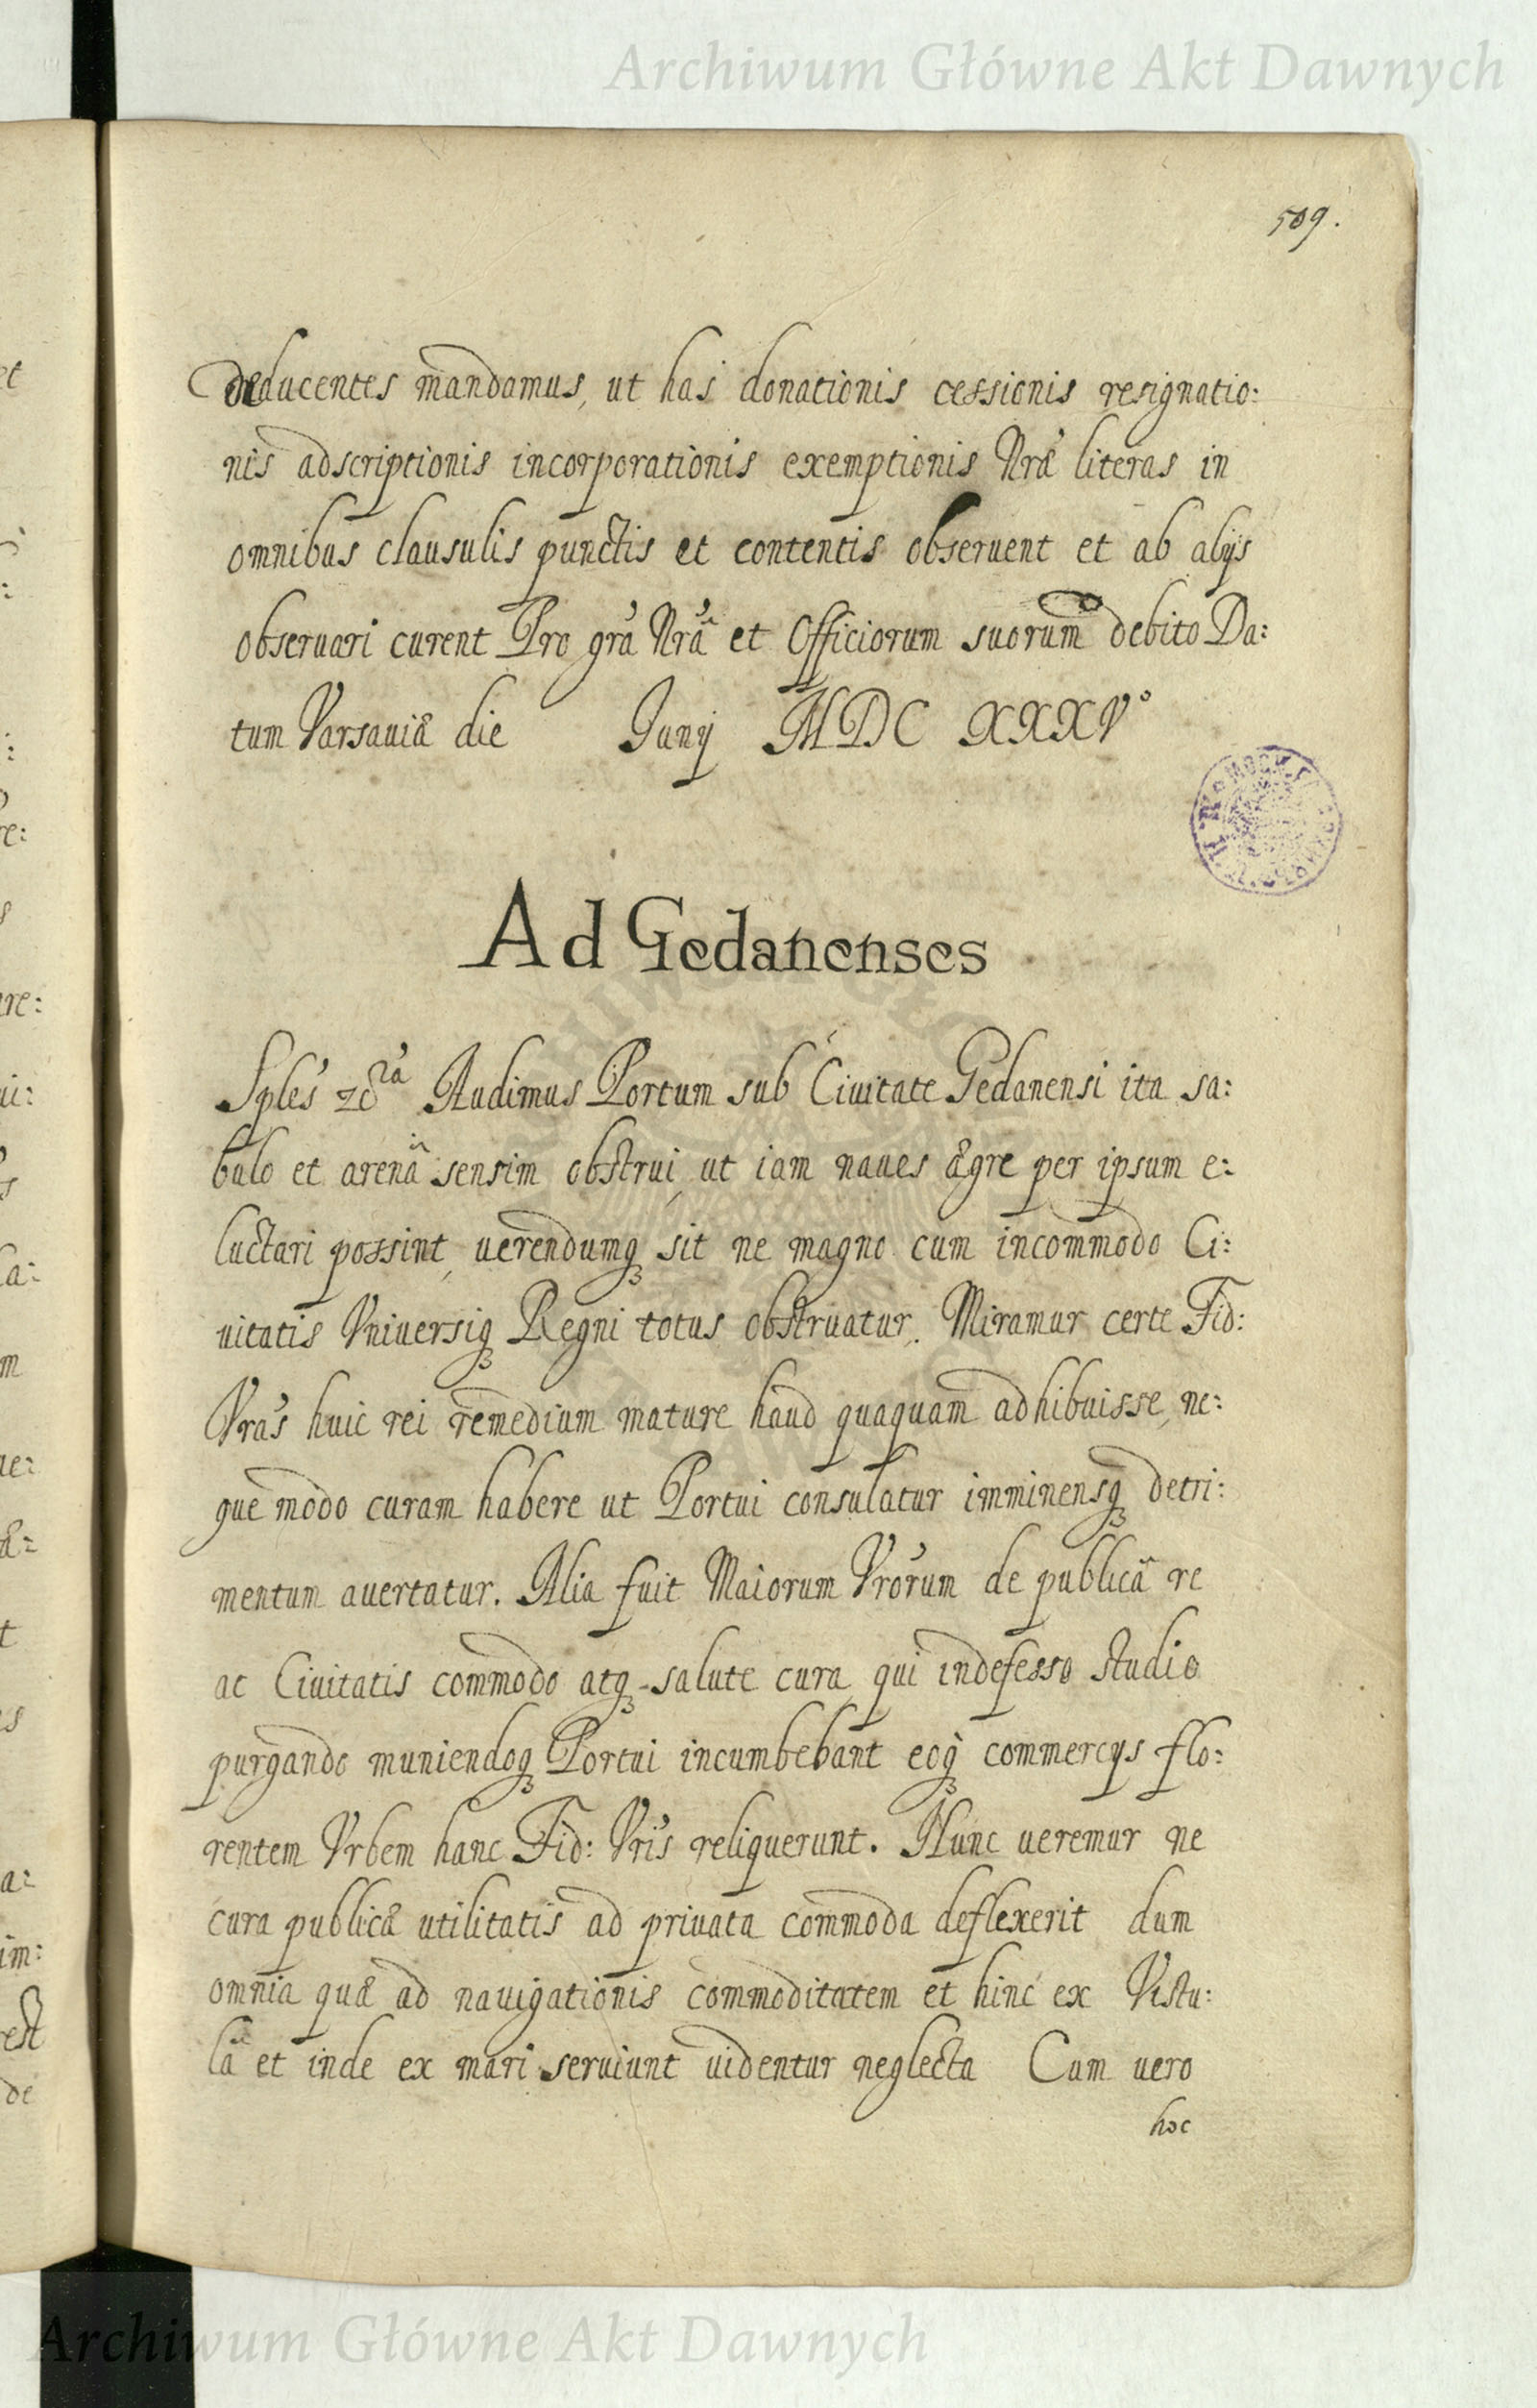 Archiwum Główne Akt Dawnych
509.
deducentes mandamus, ut has donationis cessionis resignatio:
nis adscriptionis incorporationis exemptionis Nræ literas in
omnibus clausulis punctis et contentis obseruent et ab alijs
obseruari curent Pro grã Nrâ et Officiorum suorum debito Da:
tum Varsauiæ die Junij MDC XXXV°
Ad Gedanenses
Sples Audimus Portum sub Ciuitate Gedanensi ita sa:
bulo et arenâ sensim obstrui, ut iam naues ægre per ipsum e:
luctari possint, uerendumq sit ne magno cum incommodo Ci:
uitatis Vniuersiq Regni totus obstruatur. Miramur certe Fid:
Vras huic rei remedium mature haud quaquam adhibuisse, ne:
que modo curam habere ut Portui consulatur imminensq detri:
mentum auertatur. Alia fuit Maiorum Vrorum de publicâ re
ac Ciuitatis commodo atq salute cura, qui indefesso studio
purgando muniendoq Portui incumbebant eoq commercijs flo:
rentem Vrbem hanc Fid: Vris reliquerunt. Nunc ueremur ne
cura publicæ utilitatis ad priuata commoda deflexerit dum
omnia quæ ad nauigationis commoditatem et hinc ex Vistu:
lâ et inde ex mari seruiunt uidentur neglecta Cum uero
hoc
Archiwum Główne Akt Dawnych